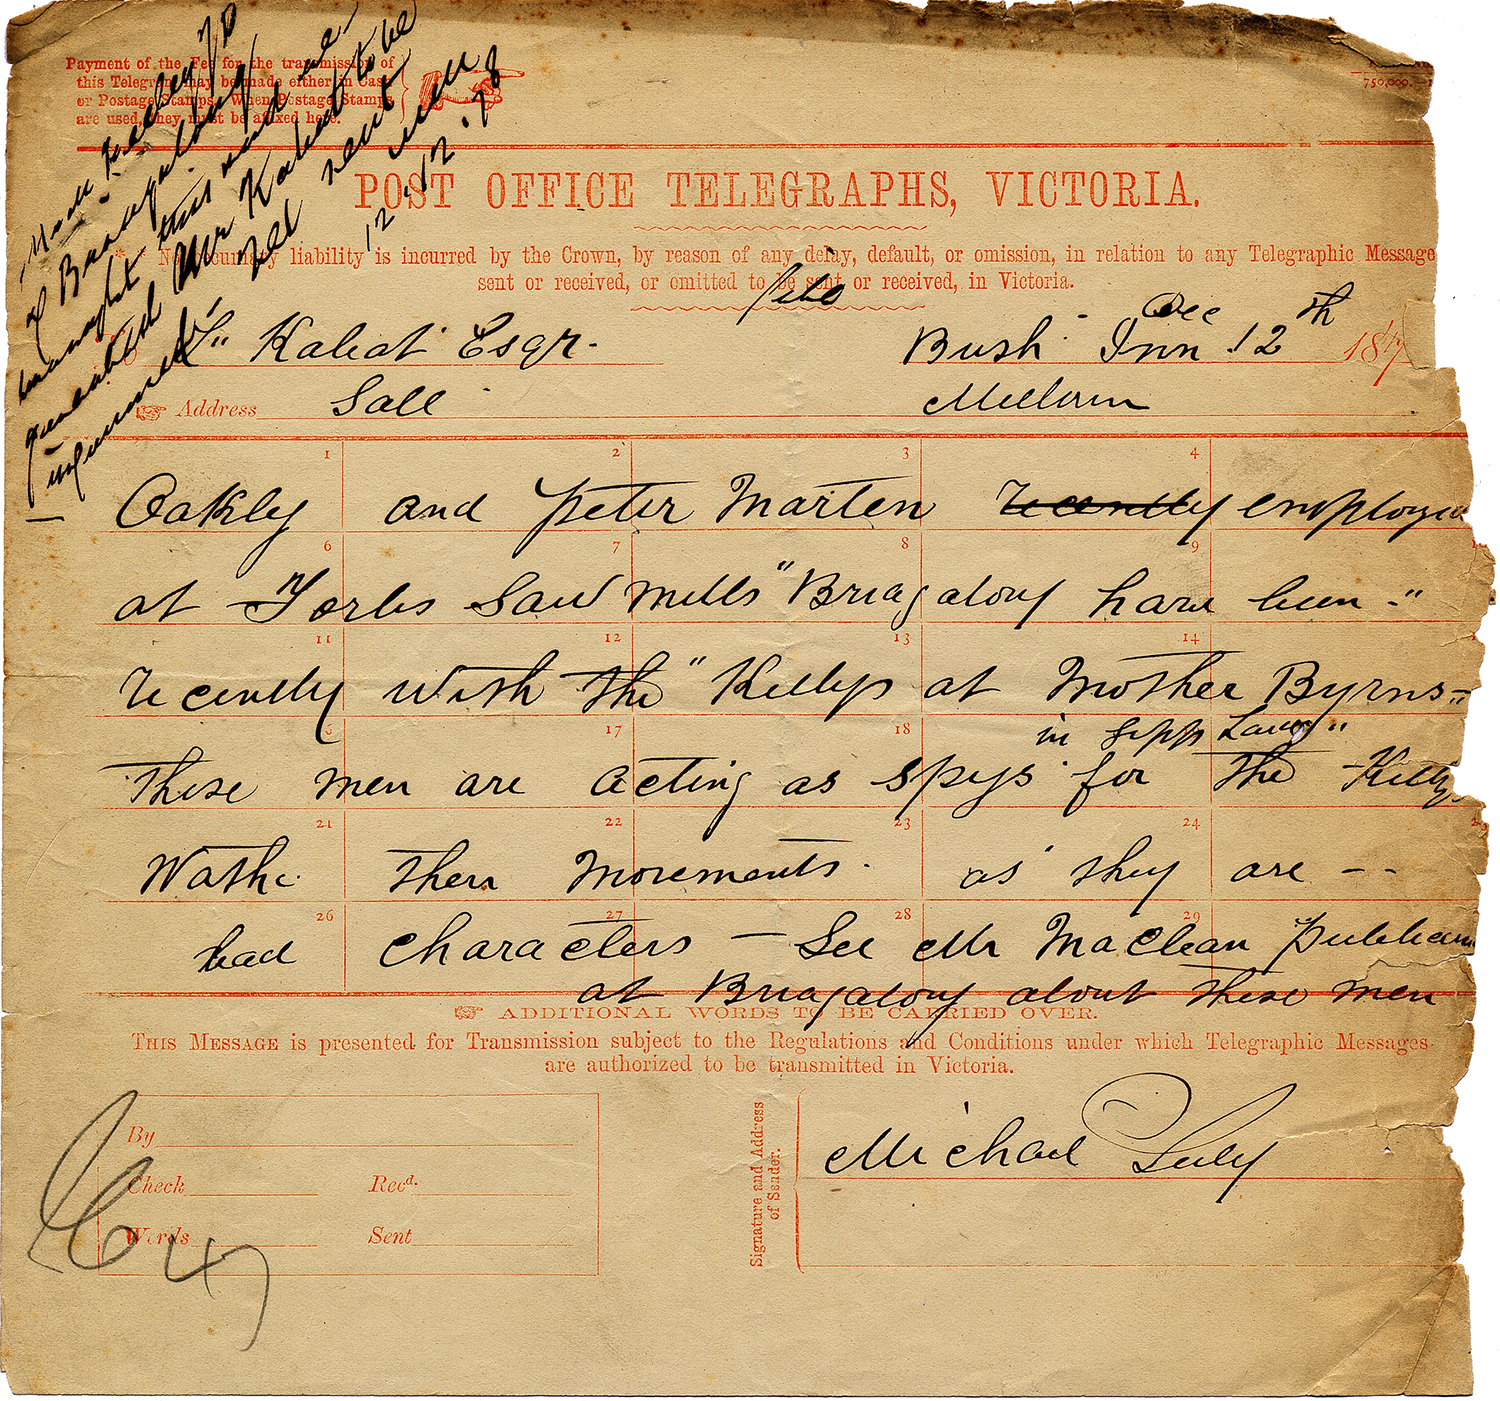 Payment of the Fee for the transmission of
this Telegram may be made either in Cash
or Postage Stamps. When Postage Stamps
are used, they must be affixed here.
750,000.
POST OFFICE TELEGRAPHS, VICTORIA.
No pecuniary liability is incurred by the Crown, by reason of any delay, default, or omission, in relation to any Telegraphic Message
sent or received, or omitted to be sent or received, in Victoria.
of Briagolong
this and
Mr Kabat to be
12.12.78
Kabat Esqr.
Bush Inn Dec 12th 187
Address Sale
Oakly and Peter Marten recently employed
at Forbs Saw Mills "Briagalong have been"
recently with the "Kellys at Mother Byrns"
in Gipps Land"
These men are acting as spys for the Kellys
Wathc there movements as they are --
bad characters — See Mr Maclean Publican
at Briagalong about these men
ADDITIONAL WORDS TO BE CARRIED OVER.
THIS MESSAGE is presented for Transmission subject to the Regulations and Conditions under which Telegraphic Messages
are authorized to be transmitted in Victoria.
By
Check Recd.
Words Sent
Signature and Address
of Sender.
Michael